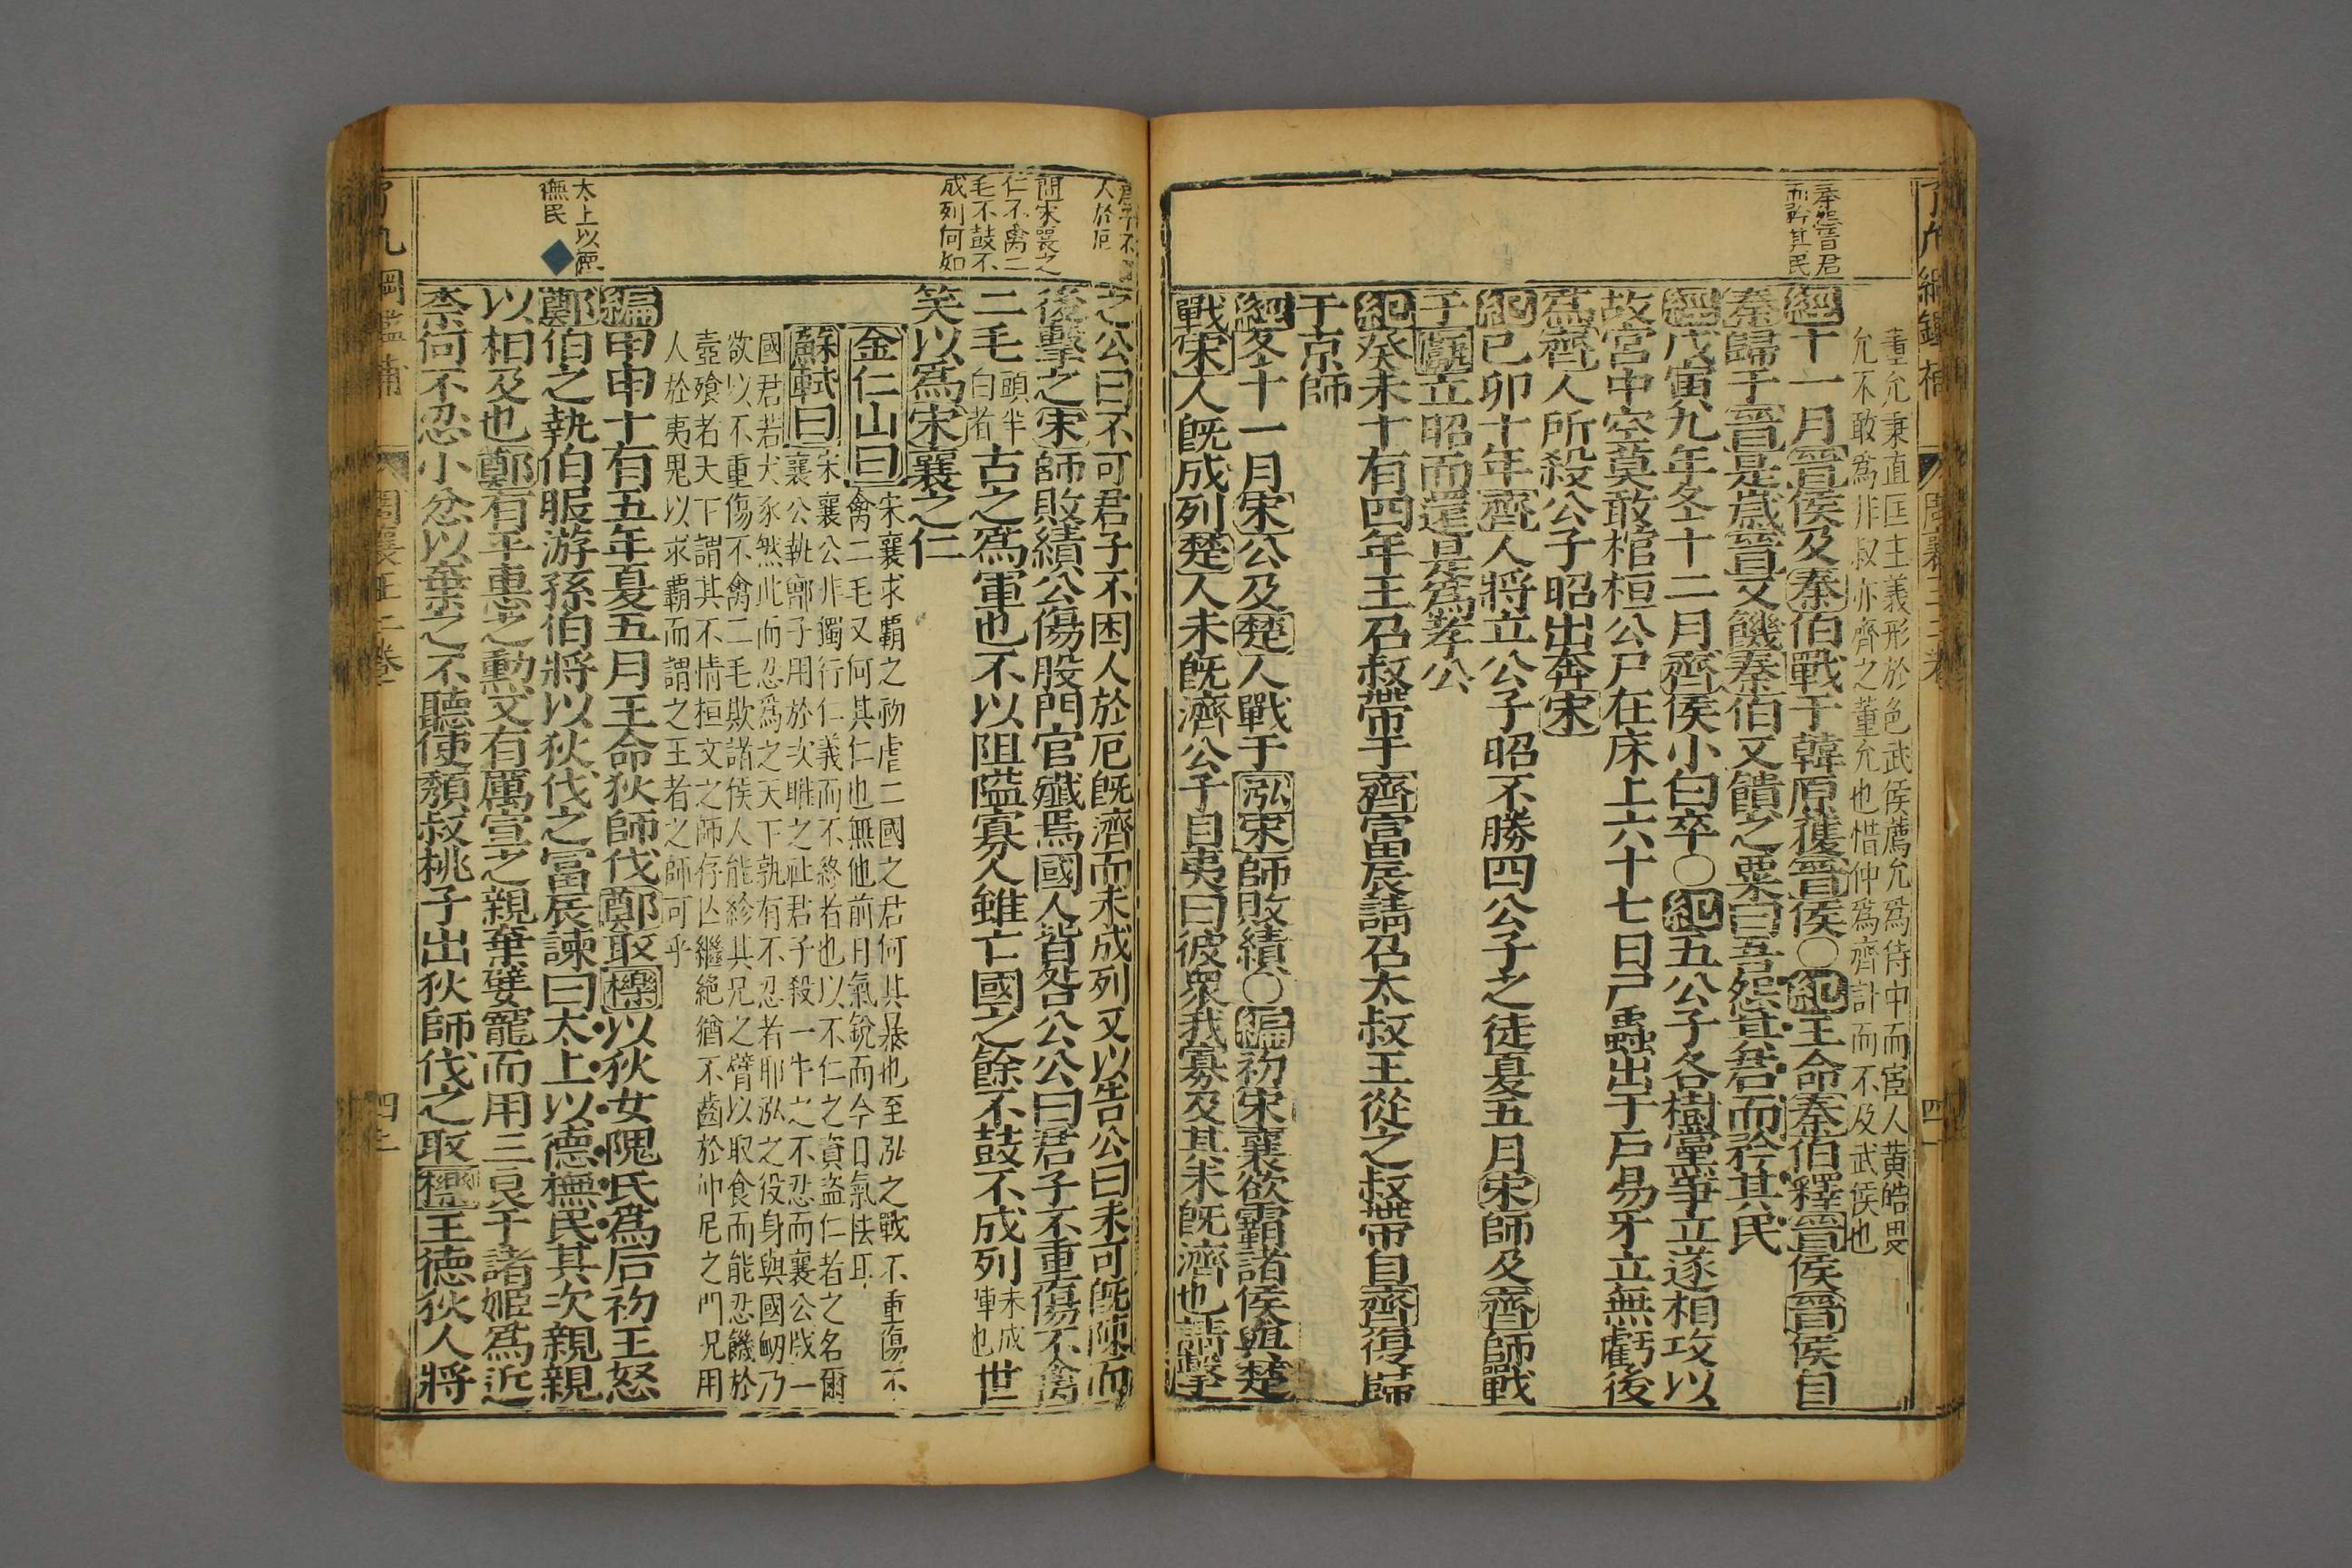 秦怨晉君
而矜其民
董允秉直匡主義形於色武侯薦允爲侍中而宦人黃皓畏
允不敢爲非叔亦齊之董允也惜仲爲齊計而不及武侯也
經十一月晉侯及秦伯戰于韓原獲晉侯○紀王命秦伯釋晉侯晉侯自
秦歸于晉是歳晉又饑秦伯又饋之粟曰吾怨其君而矜其民
經戊寅九年冬十二月齊侯小白卒○紀五公子各樹黨爭立遂相攻以
故宮中空莫敢棺桓公尸在床上六十七日尸蟲出于戶易牙立無虧後
爲齊人所殺公子昭出奔宋
紀己卯十年齊人將立公子昭不勝四公子之徒夏五月宋師及齊師戰
于甗立昭而還是爲孝公
紀癸未十有四年王召叔帶于齊富辰請召太叔王從之叔帶自齊復歸
于京師
經冬十一月宋公及楚人戰于泓宋師敗績○編初宋襄欲霸諸侯與楚
戰宋人旣成列楚人未旣濟公子目夷曰彼衆我寡及其未旣濟也請擊
人於厄
問宋襄之
仁不禽二
毛不鼓不
成列何如
太上以德
撫民
之公曰不可君子不困人於厄旣濟而未成列又以告公曰未可旣陳而
後擊之宋師敗績公傷股門官殲焉國人皆咎公公曰君子不重傷不禽
二毛頭半白者古之爲軍也不以阻隘寡人雖亡國之餘不鼓不成列未成陣也世
笑以爲宋襄之仁
金仁山曰宋襄求霸之初虐二國之君何其暴也至泓之戰不重傷不
禽二毛又何其仁也無他前日氣銳而今日氣怯耳
蘇軾曰宋襄公非獨行仁義而不終者也以不仁之資盜仁者之名爾
襄公執鄫子用於次睢之社君子殺一牛之不忍而襄公戕一
國君若犬豕然此而忍爲之天下孰有不忍者耶泓之役身與國衂乃
欲以不重傷不禽二毛欺諸侯人能紾其兄之臂以取食而能忍饑於
壺飱者天下謂其不情桓文之師存亾繼絶猶不齒於仲尼之門况用
人於夷鬼以求霸而謂之王者之師可乎
編甲申十有五年夏五月王命狄師伐鄭取櫟以狄女隗氏爲后初王怒
鄭伯之執伯服游孫伯將以狄伐之富辰諫曰太上以德撫民其次親親
以相及也鄭有平惠之勳又有厲宣之親棄嬖寵而用三良于諸姬爲近
柰何不忍小忿以棄之不聽使頽叔桃子出狄師伐之取櫟王德狄人將
了凡綱鑑補
周襄王二卷